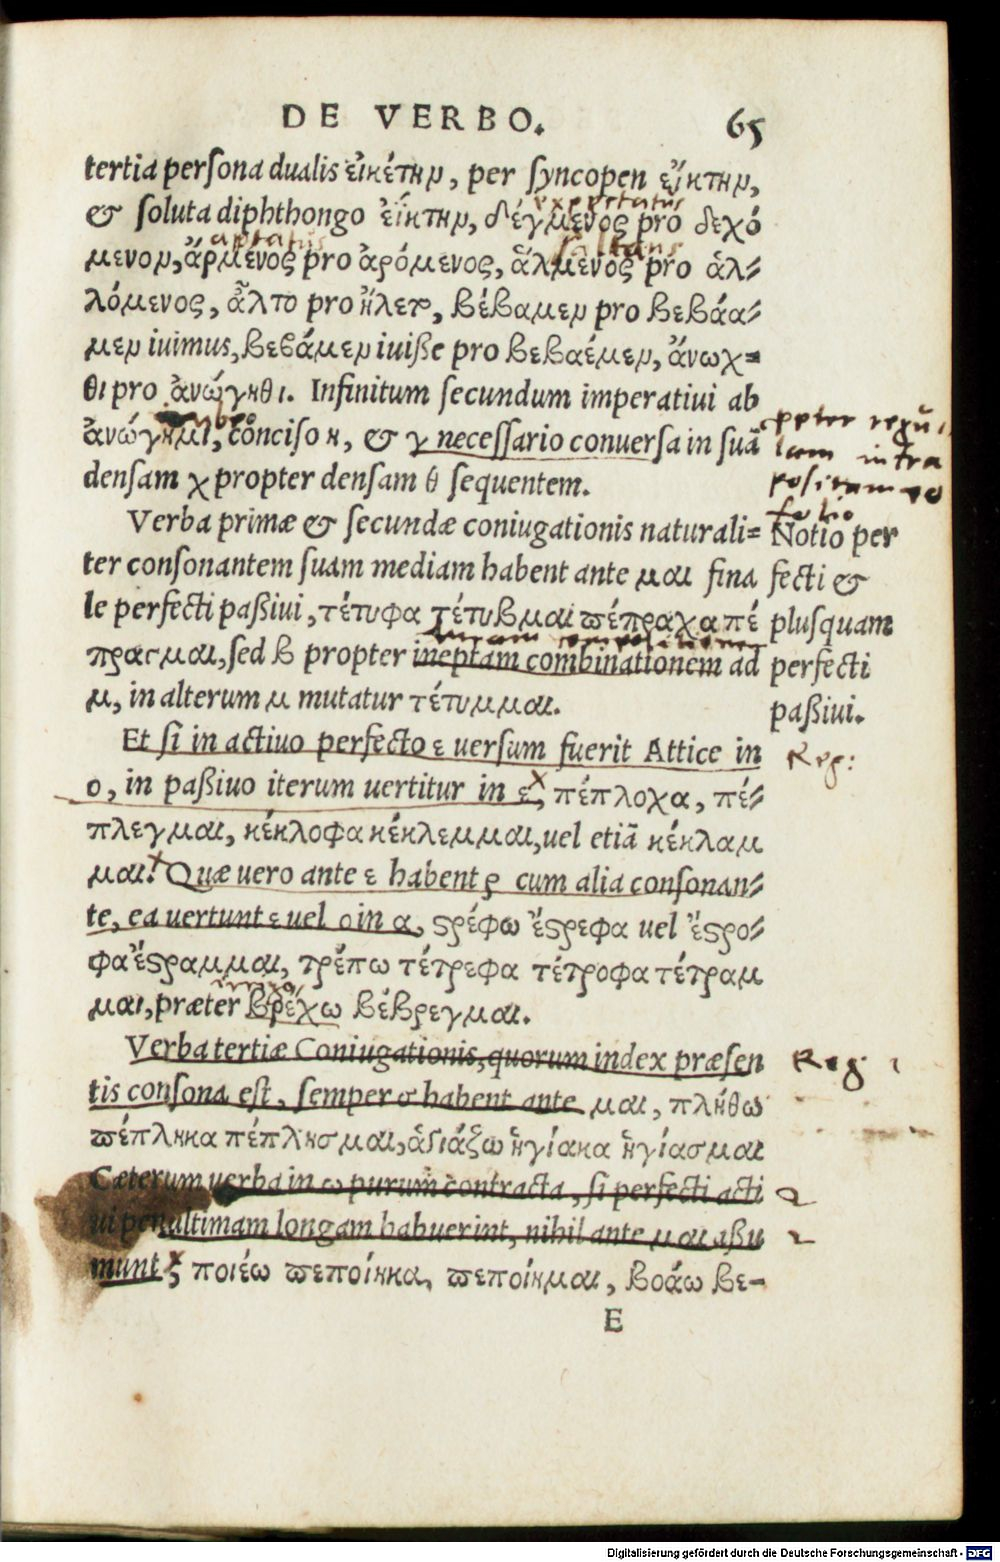 DE VERBO. 65
tertia persona dualis εἰκέτην, per syncopen εἴκτην,
expectatus
& soluta diphthongo ἐΐκτην, δέγμενος pro δεχό
aptatus saltans
μενον, ἄρμενος pro ἀρόμενος, ἅλμενος pro ἁλ-
λόμενος, ἆλτο pro ἥλετο, βέβαμεν pro βεβάα-
μεν iuimus, βεβάμεν iuiße pro βεβαέμεν, ἄνωχ=
θι pro ἀνώγηθι. Infinitum secundum imperatiui ab
ἀνώγημι, conciso η, & γ necessario conuersa in suã
densam χ propter densam θ sequentem.
ppter regu
lam infra
positam
Verba primæ & secundæ coniugationis naturali=
ter consonantem suam mediam habent ante μαι fina
le perfecti paßiui, τέτυφα τέτυβμαι πέπραχα πέ
πραγμαι, sed β propter ineptam combinationem ad
μ, in alterum μ mutatur τέτυμμαι.
Notio per
fecti &
plusquam
perfecti
paßiui.
Et si in actiuo perfecto ε uersum fuerit Attice in
ο, in paßiuo iterum uertitur in ε, πέπλοχα, πέ-
πλεγμαι, κέκλοφα κέκλεμμαι, uel etiã κέκλαμ
μαι. Quæ uero ante ε habent ρ cum alia consonan-
te, ea uertunt ε uel ο in α, ϛρέφω ἔϛρεφα uel ἔϛρο-
φα ἔϛραμμαι, τρέπω τέτρεφα τέτροφα τέτραμ
μαι, præter βρέχω βέβρεγμαι.
Reg:
Verba tertiæ Coniugationis, quorum index præsen
tis consona est, semper σ habent ante μαι, πλήθω
πέπληκα πέπλησμαι, ἁγιάζω ἡγίακα ἡγίασμαι
Cæterum uerba in ω purum contracta, si perfecti acti
ui penultimam longam habuerint, nihil ante μαι aßu
munt, ποιέω πεποίηκα, πεποίημαι, βοάω βε-
Reg
E
Digitalisierung gefördert durch die Deutsche Forschungsgemeinschaft - DFG